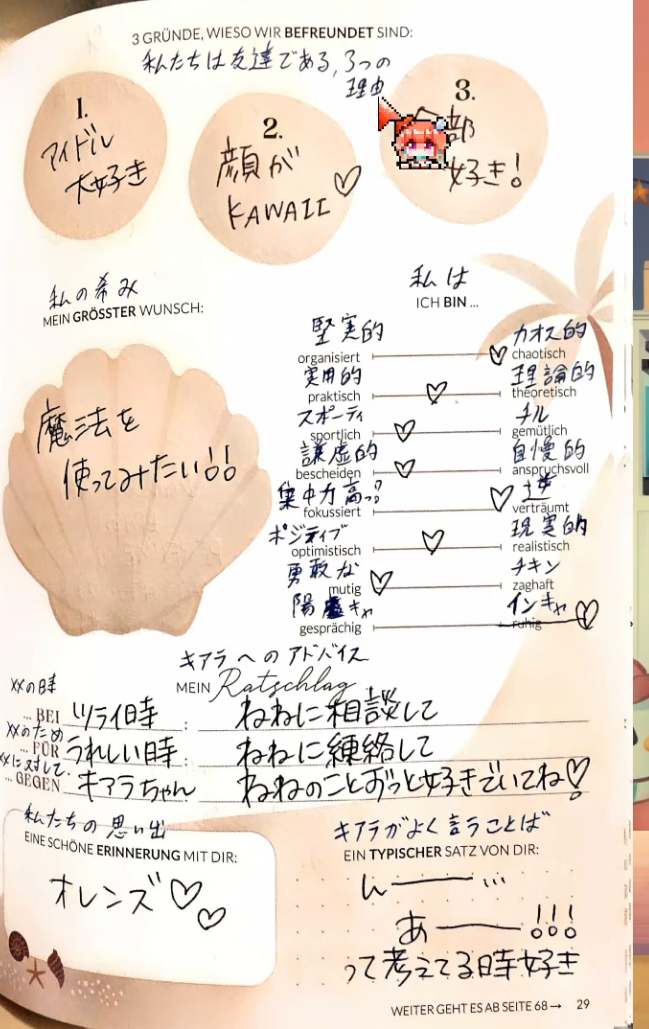 3 GRÜNDE, WIESO WIR BEFREUNDET SIND:
私たちは友達である、3つの
理由
1.
アイドル
大好き
2.
顔が
KAWAII♡
3.
部
好き!
私の希み
MEIN GRÖSSTER WUNSCH:
魔法を
使ってみたい!!
私は
ICH BIN ...
堅実的 カオス的
organisiert chaotisch
実用的 理論的
praktisch theoretisch
スポーティ チル
sportlich gemütlich
謙虚的 自慢的
bescheiden anspruchsvoll
集中力高っ? 逆
fokussiert verträumt
ポジティブ 現実的
optimistisch realistisch
勇敢な チキン
mutig zaghaft
陽キャ インキャ
gesprächig ruhig
キアラへのアドバイス
MEIN Ratschlag
××の時
... BEI ツライ時 : ねねに相談して
××のため
... FÜR うれしい時 : ねねに連絡して
××に対して
... GEGEN キアラちゃん ねねのことずっと好きでいてね♡
私たちの思い出
EINE SCHÖNE ERINNERUNG MIT DIR:
オレンズ♡♡
キアラがよく言うことば
EIN TYPISCHER SATZ VON DIR:
ん――…
あ――!!!
って考えてる時好き
WEITER GEHT ES AB SEITE 68→ 29